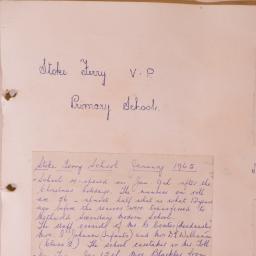 Stoke Ferry V. P
Primary School.
Stoke Ferry School January 1965
School re-opened on Jan 9th after the
Christmas holidays. The numbers on roll
are 76 - almost half what it was 12 years
ago before the seniors were transferred to
Methwold Secondary Modern School.
The staff consists of Mr
Mrs (Infants) and Mrs D. Williams
(Class 2). The school caretaker is Mrs